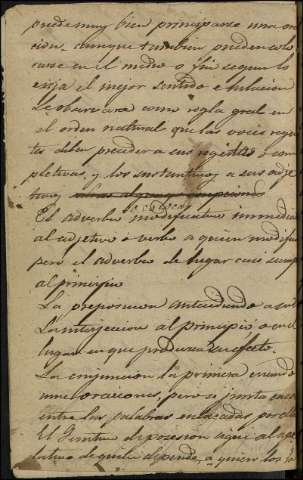 puede muy bien principiarse una or
cion, aunque tambien pueden colo
carse en el medio o fin segun lo
exija el mejor sentido e hilacion
Se observará como regla gral en
el orden natural que las voces regen
tes deben preceder a sus regidas o com
pletivas, y los sustantivos a sus adje
tivos
El adverbio modificativo immediat
al adjetivo ó verbo a quien modifica
pero el adverbio de lugar casi siemp
al principio
La preposicion antecediendo a su
La interjeccion al principio o en el
lugar en que produzca su efecto.
La conjuncion la primera cuando
une oraciones, pero si junta
entre las palabras enlazadas por ella
El Genitivo de posesion sigue al ape
lativo de quien depende, a quien los